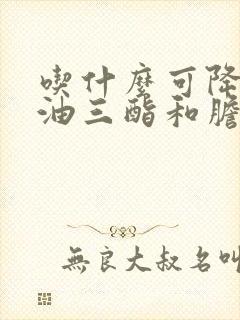 喫什麼可降
油三酯和膽
無良大叔名叫